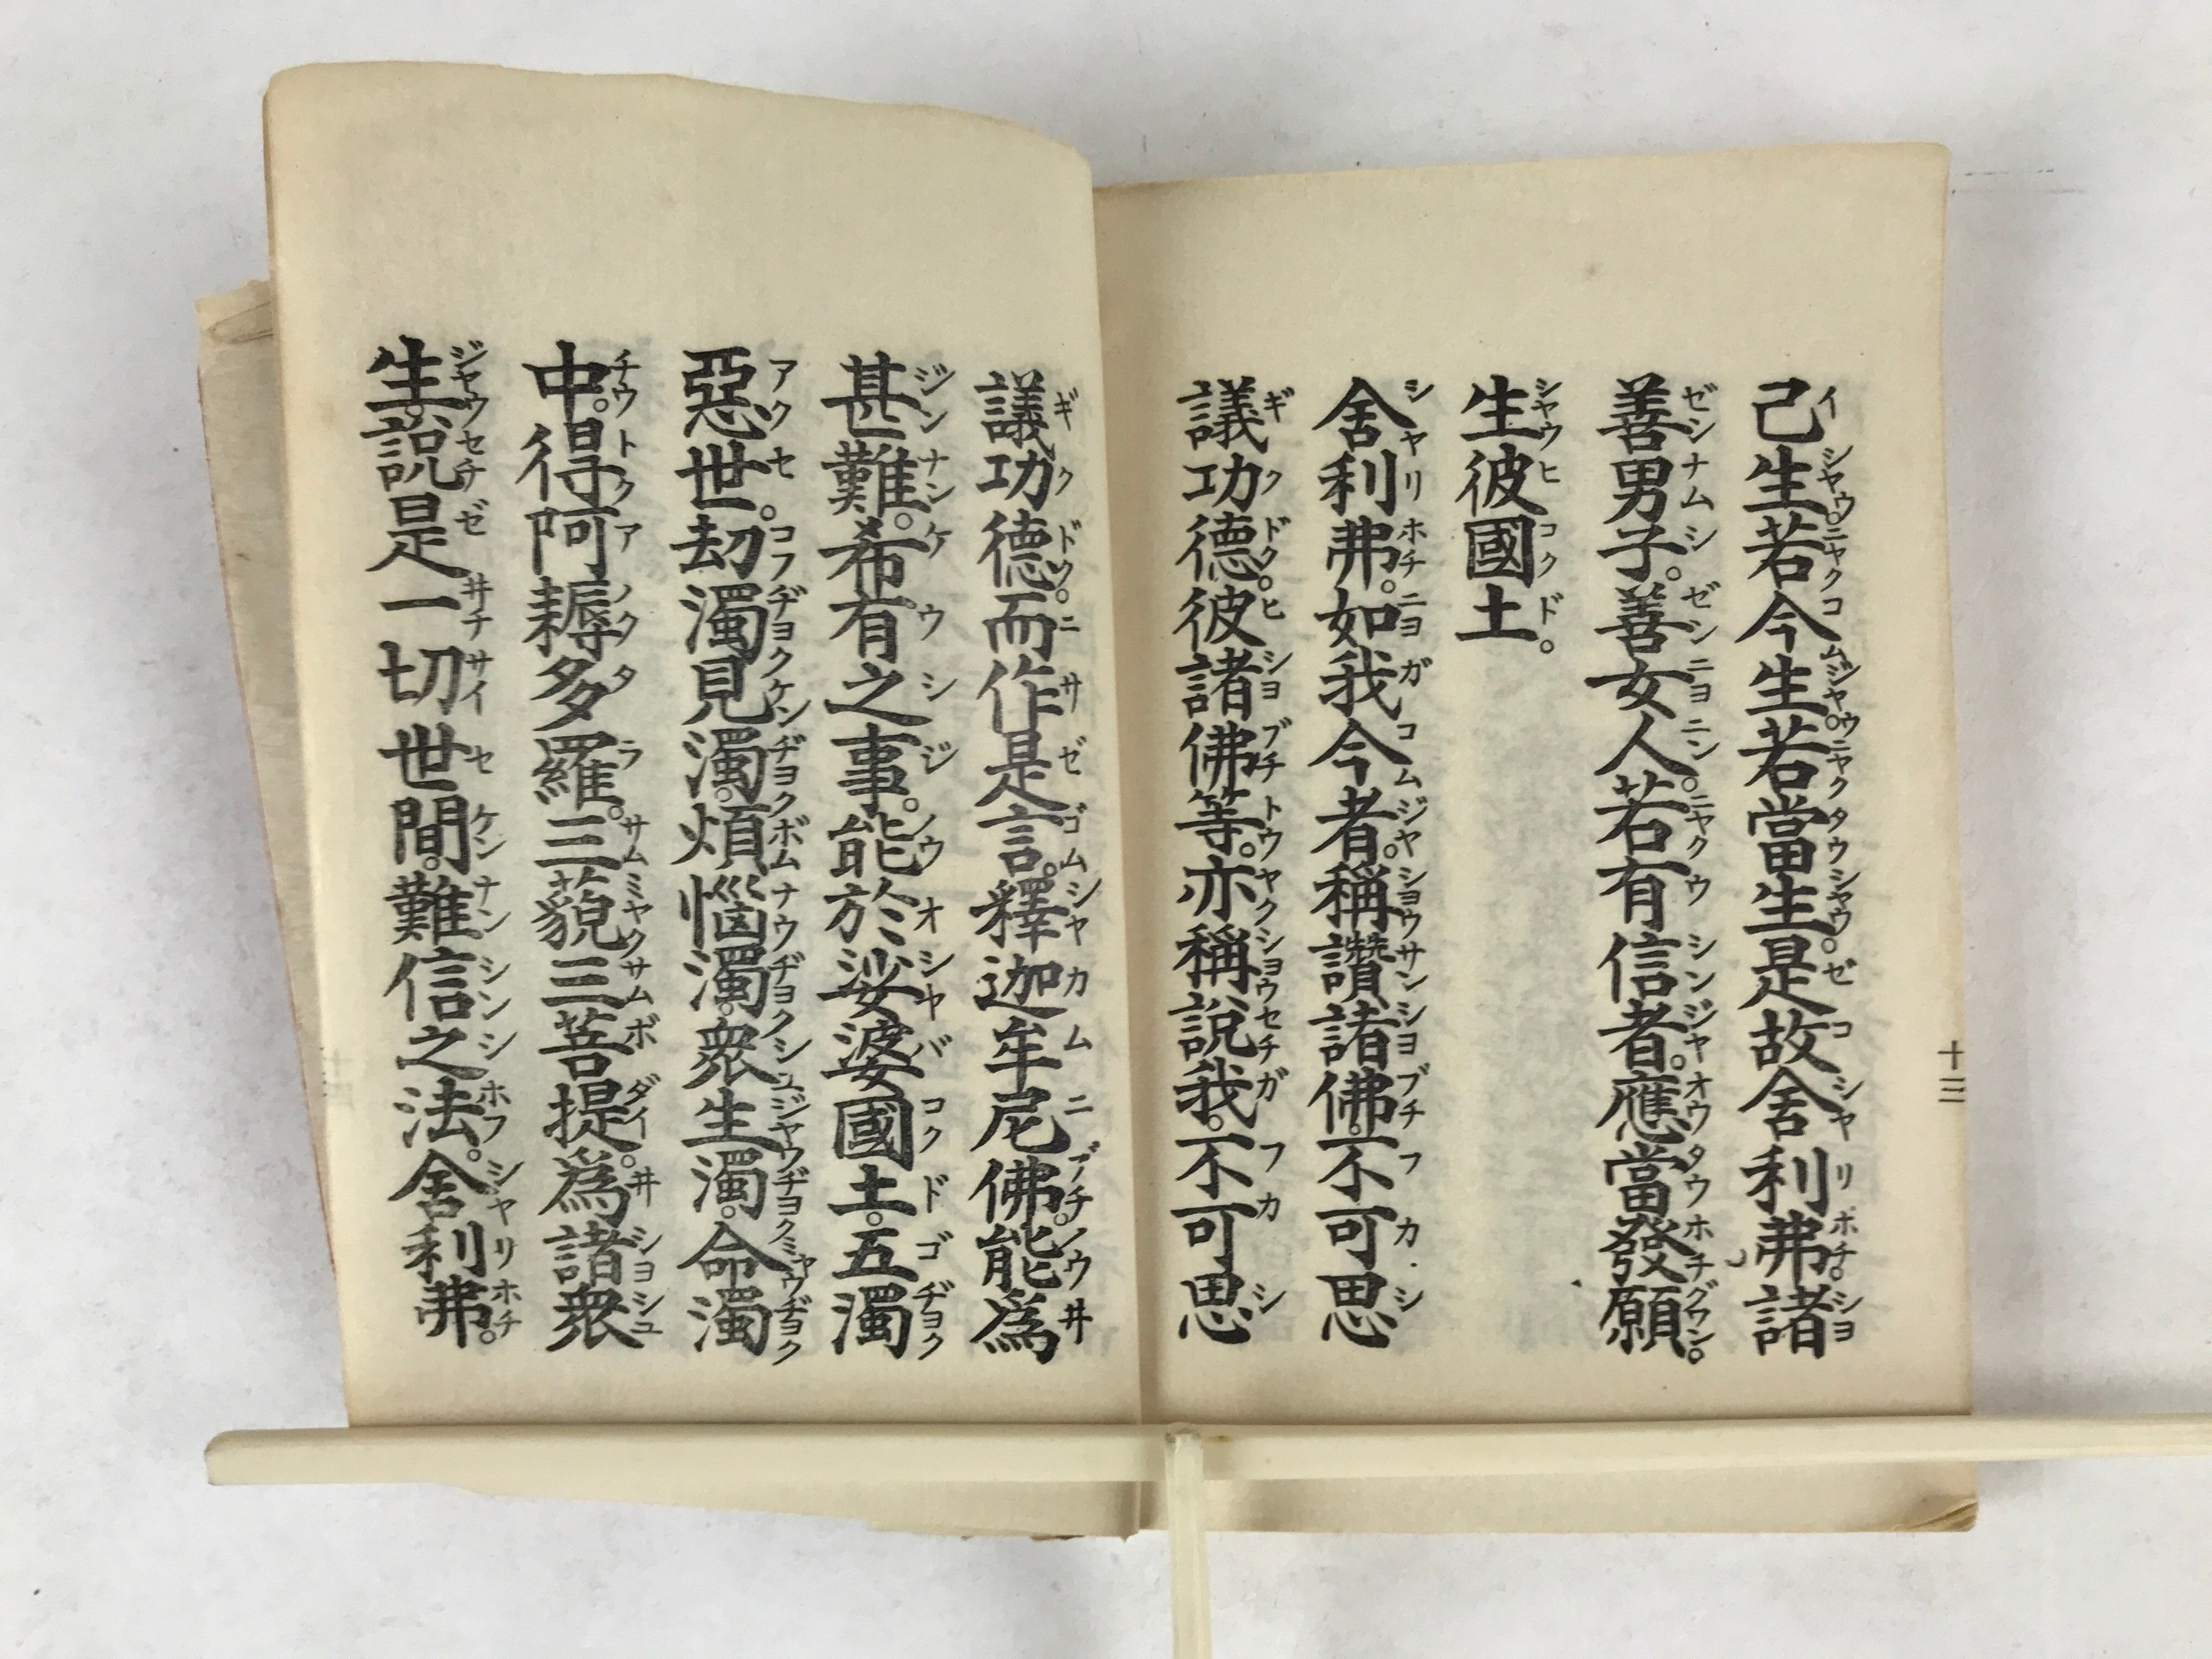 己生。若今生。若當生。是故舍利弗。諸
善男子。善女人。若有信者。應當發願。
生彼國土。
舍利弗。如我今者。稱讚諸佛。不可思
議功德。彼諸佛等。亦稱說我。不可思
十三
議功德。而作是言。釋迦牟尼佛。能爲
甚難。希有之事。能於娑婆國土。五濁
惡世。劫濁見濁。煩惱濁。衆生濁。命濁
中。得阿耨多羅。三藐三菩提。爲諸衆
生。說是一切世間。難信之法。舍利弗。